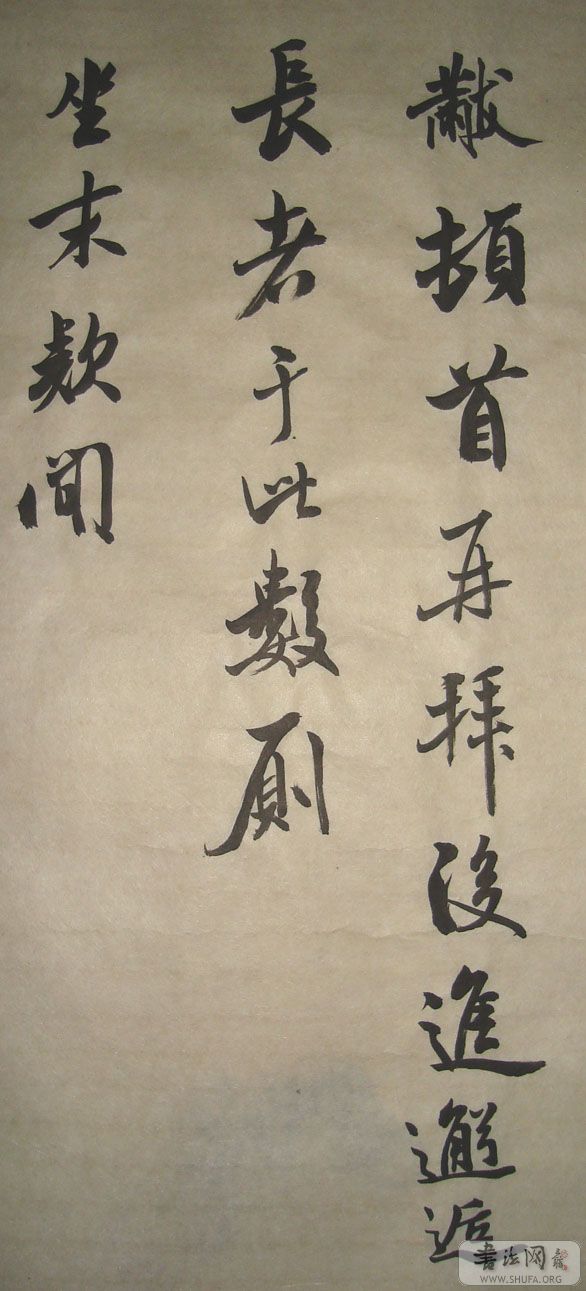 黻頓首再拜後進邂逅
長者于此數廁
坐末款聞
書法网
WWW.SHUFA.ORG